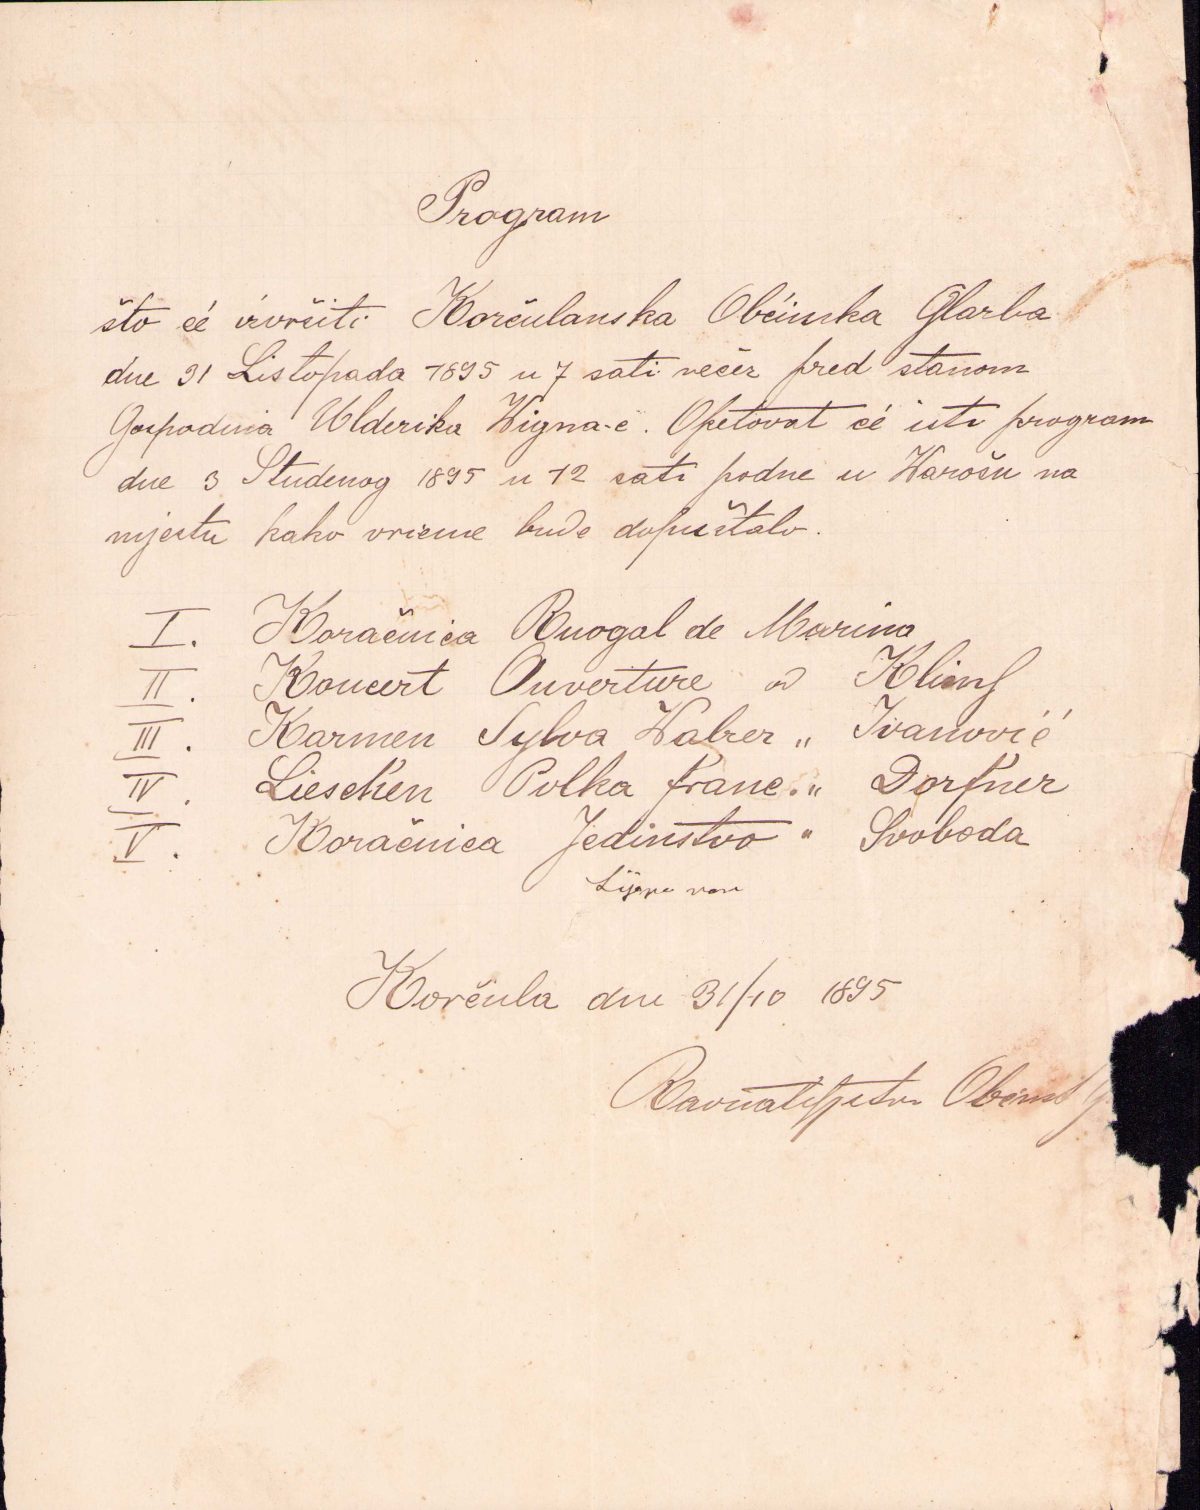 Program
što će izvršiti Korčulanska Obćinska Glazba
dne 31 Listopada 1895 u 7 sati večer pred stanom
Gospodina Ulderika
Opetovat će isti program
dne 3 Studenog 1895 u 12 sati podne u Varošu na
mjestu kako vrieme bude dopuštalo.
I. Koračnica de Marina
II. Koncert Ouverture od Kling
III. Karmen Sylva Valzer „ Ivanović
IV. Lieschen Polka franc. „ Dorfner
V. Koračnica Jedinstvo „ Svoboda
Korčula dne 31/10 1895